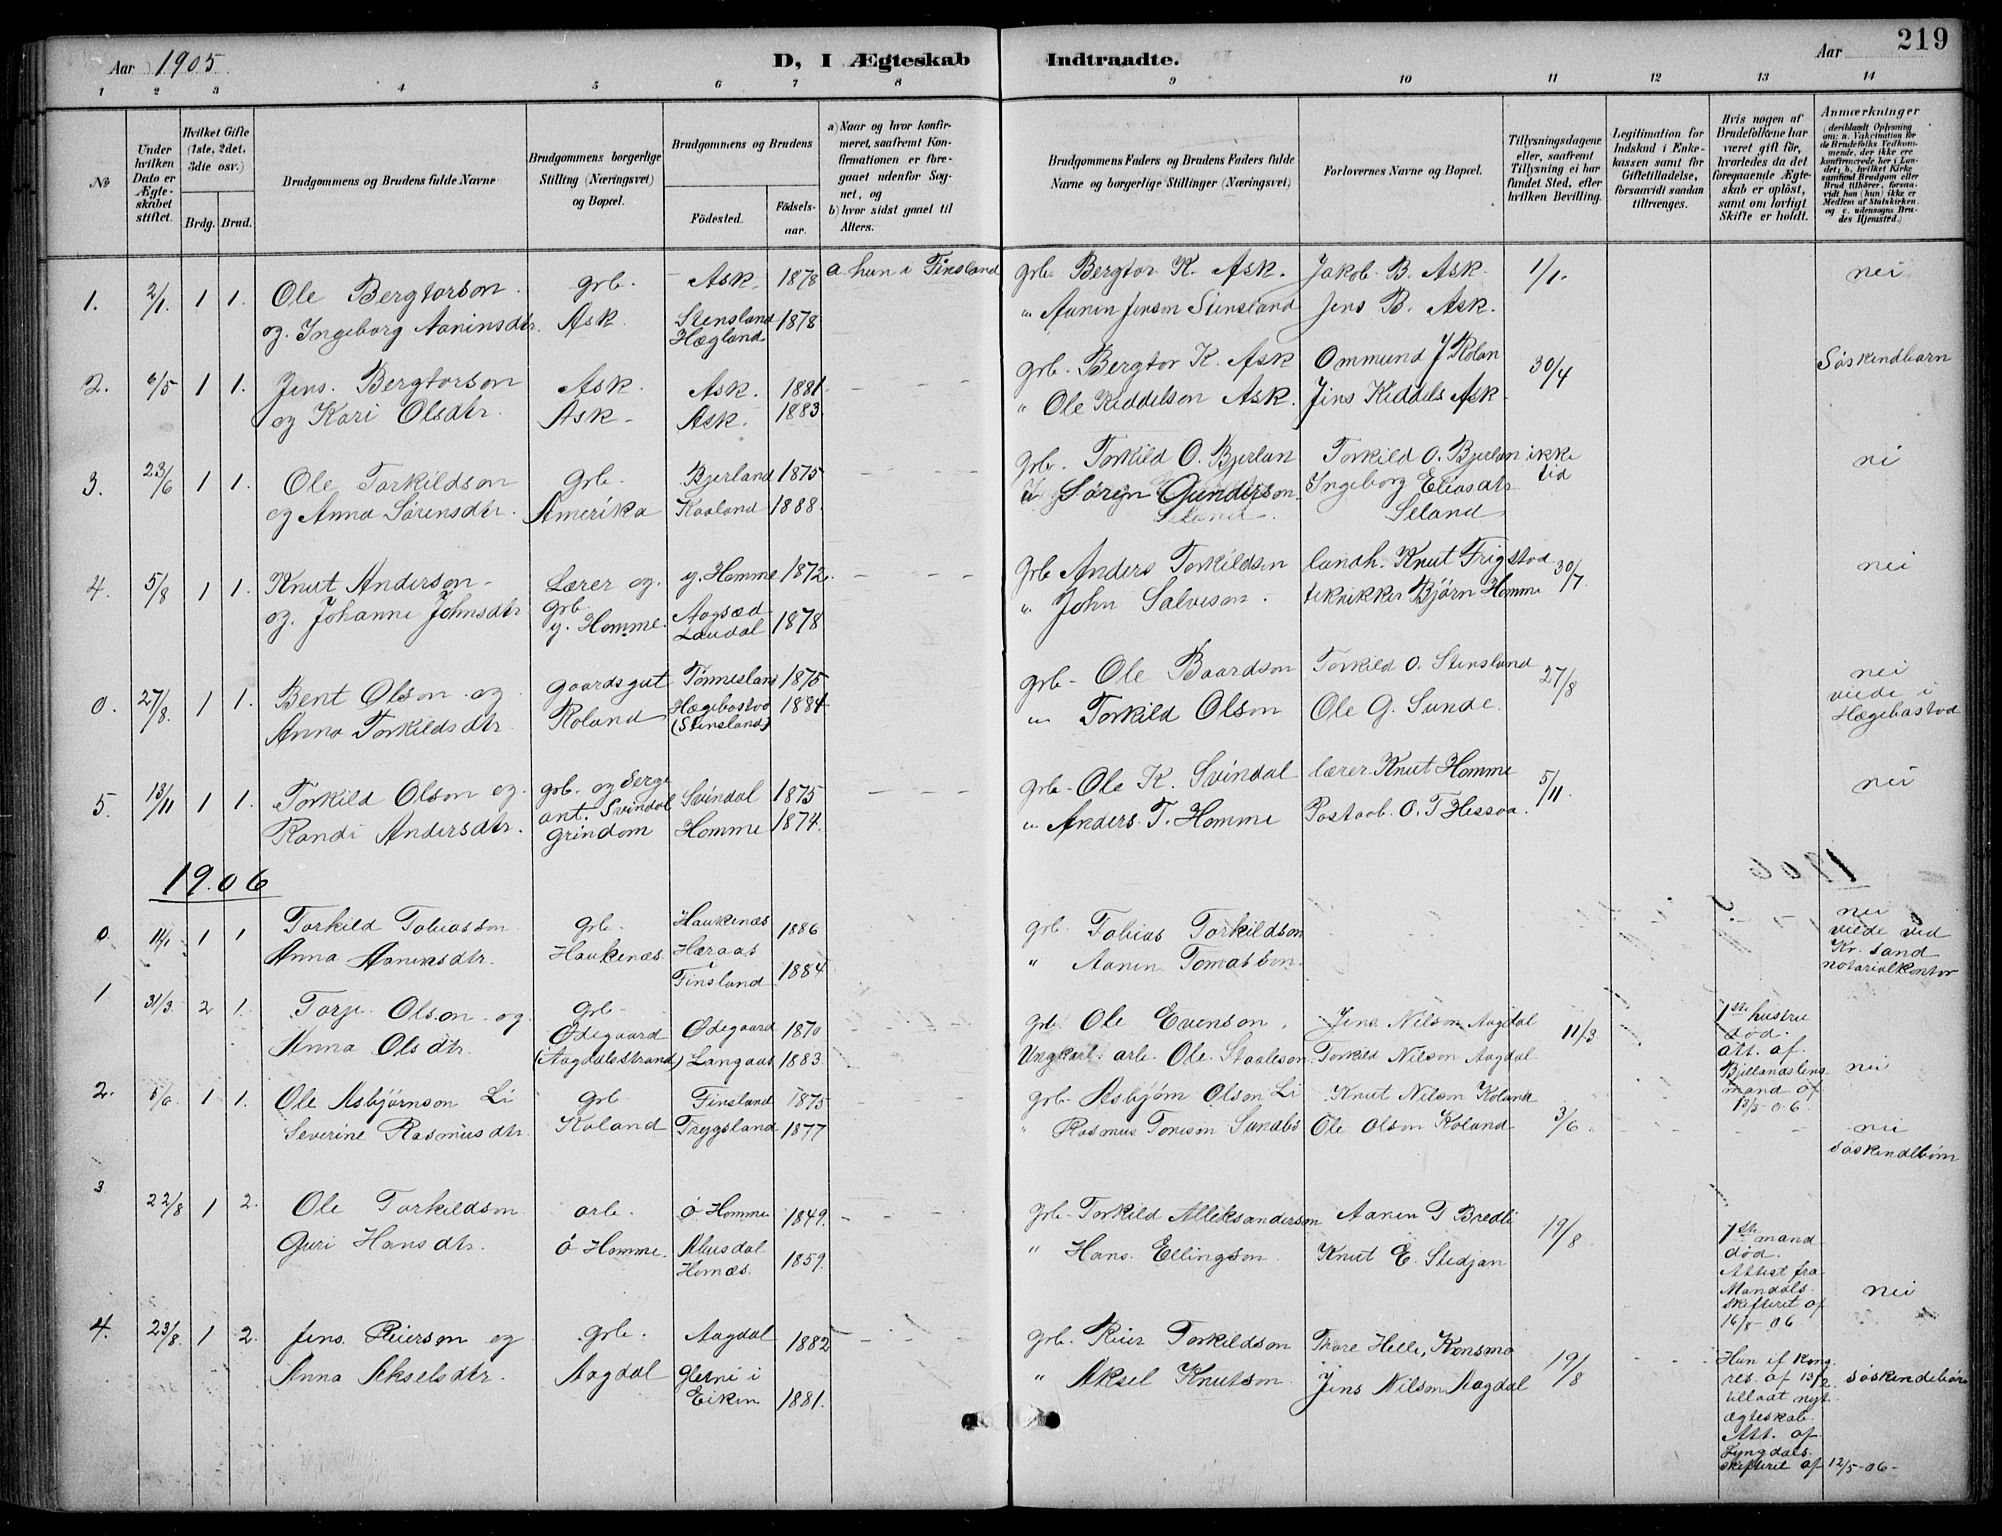 219
Aar 1905. D, I Ægteskab Indtraadte. Aar
1 2 3 4 5 6 7 8 9 10 11 12 13 14
No
Under hvilken Dato er Ægteskabet stiftet.
Hvilket Gifte (1ste, 2det, 3die osv.)
Brdg. Brud.
Brudgommens og Brudens fulde Navne
Brudgommens borgerlige Stilling (Næringsvei) og Bopæl.
Brudgommens og Brudens
Födested.
Födselsaar.
a) Naar og hvor konfirmeret, saafremt Konfirmationen er foregaaet udenfor Sognet, og
b) hvor sidst gaaet til Alters.
Brudgommens Faders og Brudens Faders fulde Navne og borgerlige Stillinger (Næringsvei)
Forlovernes Navne og Bopæl.
Tillysningsdagene eller, saafremt Tillysning ei har fundet Sted, efter hvilken Bevilling.
Legitimation for Indskud i Enkekassen samt for Giftetilladelse, forsaavidt saadan tiltrænges.
Hvis nogen af Brudefolkene har været gift för, hvorledes da det foregaaende Ægteskab er oplöst, samt om lovligt Skifte er holdt.
Anmærkninger
(deriblandt Oplysning om: a. Vakcination for de Brudefolks Vedkommende, der ikke ere konfirmerede her i Landet; b. hvilket Kirkesamfund Brudgom eller Brud tilhörer, forsaavidt han (hun) ikke er Medlem af Statskirken, og c. udensogns Brudes Hjemsted.)
1. 2/1. 1 1. Ole Bergtorson grb. Ask. 1878 a hun i Finsland grb. Bergtor K. Ask. Jakob B. Ask. 1/1. nei
og. Ingeborg Aaninsdtr. Ask. Stensland Hægland 1878 " Aanen Jenson Stensland Jens B. Ask.
2. 6/5 1 1. Jens. Bergtorson Ask. Ask. 1881. grb. Bergtor K. Ask Ommund J Rolan 30/4 Söskendbarn
og Kari Olsdtr. Ask Ask. 1883 " Ole Keddelson Ask. Jens Keddels Ask
3. 23/6 1 1. Ole Torkildson grb. Bjerland 1875 grb. Torkild O. Bjerlan Torkild O. Bjerlan ikke tid
og Anna Sörensdtr. Amerika Kaaland 1888. Sören Gunderson Seland Ingeborg Eliasdtr Seland
4. 5/8 1 1. Knut Anderson Lærer og grb. y. Homme 1872. grb Anders Torkildson landh. Knut Frigstad 30/7 nei
og. Johanne Johnsdtr y. Homme. Aagsæd Laudal 1878 " John Salveson. tekniker Björn Homme
0. 27/8. 1 1. Bent Olson og gaardsgut Tönnesland 1875 grb. Ole Baardson Torkild O. Stensland 27/8 nei
Anna Torkildsdtr. Roland Hægebostad (Stensland) 1884 " Torkild Olson Ole G. Sunde. viede i Hægebostad
5 13/11 1 1. Torkild Olson og grb. og Sergeant. Svindal Svindal 1875 grb. Ole K. Svindal lærer Knut Homme 5/11. nei
Randi Andersdtr. grindom Homme 1874. " Anders. T. Homme Postaab. O. T Hessaa.
1906
0. 14/1 1 1 Torkild Tobiasson grb. Haukenæs 1886 grb. Tobias Torkildson nei
Anna Aanensdtr. Haukenæs Hæraas Finsland 1884 " Aanen Tomassen viede ved Kr. sand notarialkontor
1 31/3. 2 1. Torje Olson og grb. Ødegaard Ødegaard 1870 grb. Ole Evenson. Jens Nilson Aagdal 11/3 1ste hustru död. att. af Bjellandslensmand af 13/3-06. nei
Anna Olsdtr. (Aagdalsstrand) Langaas 1883. Ungkarl. arb. Ole Staaleson Torkild Nilson Aagdal
2. 5/6. 1 1. Ole Asbjörnson Li grb Finsland 1875 grb. Asbjörn Olson Li Knut Nilson Koland 3/6 nei
Severine Rasmusdtr. Koland Trygsland 1877 " Rasmus Toreson Sundbö Ole Olson Koland söskendebörn
3 22/8 1 2. Ole Torkildson arb. ö Homme 1849. grb. Torkild Alleksanderson Aanen T Bredli 19/8 1ste mand död. Attest fra Mandals skifteret af 16/8-06 nei
Guri Hansdtr. ö Homme. Musdal Homæs. 1859. " Hans. Ellingson Knut E. Stedjan
4. 23/8. 1 2. Jens. Reierson og grb. Aagdal 1882 grb. Reier Torkildson Thore Helle, Konsmo 19/8 Hun if Kong. res. af 13/2. tilladt nyt ægteskab. Att. af Lyngdals skifteret af 12/5-06- söskendebörn
Anna Akselsdtr. Aagdal Gletne i Eiken 1881. " Aksel Knutson. Jens Nilson Aagdal